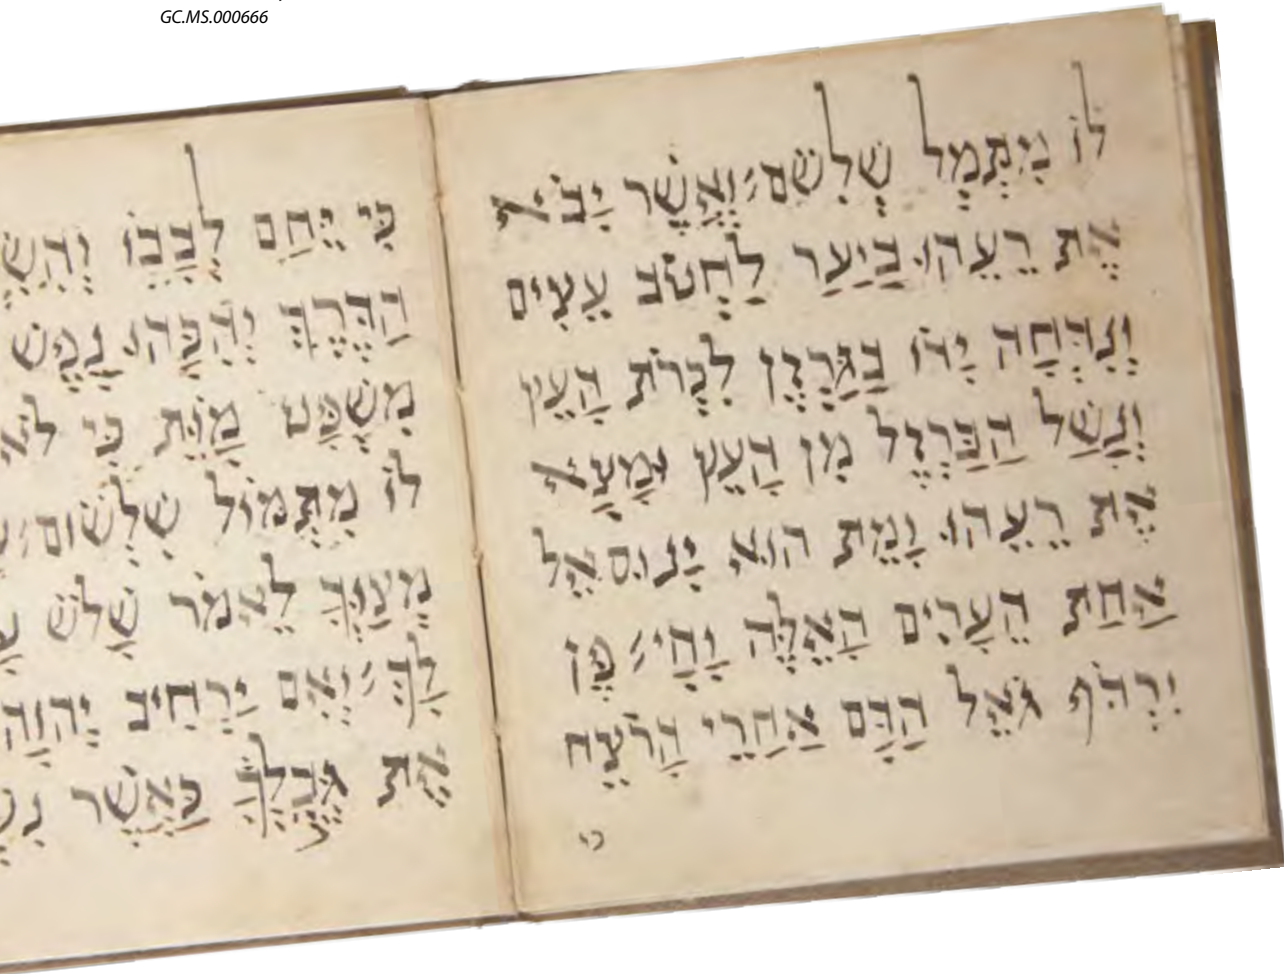 GC.MS.000666
לוֹ מִתְּמֹל שִׁלְשֹׁם׃ וַאֲשֶׁר יָבֹא
אֶת רֵעֵהוּ בַיַּעַר לַחְטֹב עֵצִים
וְנִדְּחָה יָדוֹ בַגַּרְזֶן לִכְרֹת הָעֵץ
וְנָשַׁל הַבַּרְזֶל מִן הָעֵץ וּמָצָא
אֶת רֵעֵהוּ וָמֵת הוּא יָנוּס אֶל
אַחַת הֶעָרִים הָאֵלֶּה וָחָי׃ פֶּן
יִרְדֹּף גֹּאֵל הַדָּם אַחֲרֵי הָרֹצֵחַ
כי
כִּי יֵחַם לְבָבוֹ
הַדֶּרֶךְ וְהִכָּהוּ נָפֶשׁ
מִשְׁפַּט מָוֶת כִּי לֹא
לוֹ מִתְּמוֹל שִׁלְשׁוֹם׃
מְצַוְּךָ לֵאמֹר שָׁלֹשׁ
לָךְ׃ וְאִם יַרְחִיב יְהוָה
אֶת גְּבֻלְךָ כַּאֲשֶׁר